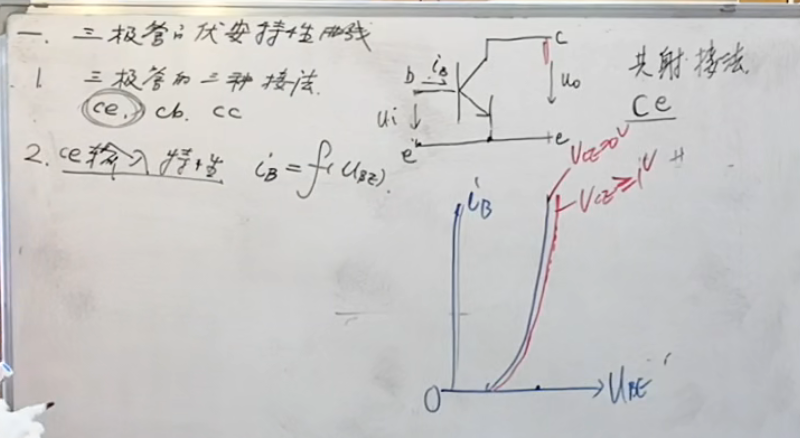 一、三极管的伏安特性曲线
1 三极管的三种接法.
ce. cb. cc
2. ce输入特性 iB=f(UBE).
b iB c
ui uo
e e
共射接法.
ce
VCE=0V
VCE≥1V
iB
O UBE